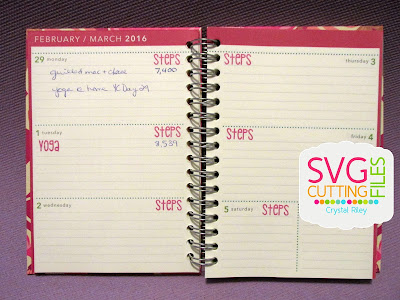 FEBRUARY / MARCH 2016
29 monday
STEPS
7,400
yoga @ home YC Day 29
1 tuesday
STEPS
YOGA
3,539
2 wednesday
STEPS
STEPS
thursday 3
STEPS
friday 4
5 saturday
STEPS
SVG
CUTTING
FILES
Crystal Riley